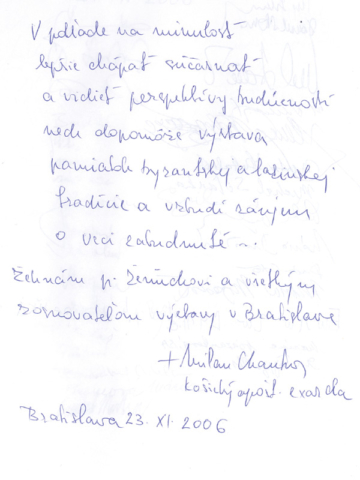 V pohľade na minulosť
lepšie chápať súčasnosť
a vidieť perspektívy budúcnosti
nech dopomôže výstava
pamiatok byzantskej a latinskej
tradície a vzbudí záujem
o veci zabudnuté ...
Žehnám p. Žeňuchovi a všetkým
usporiadateľom výstavy v Bratislave
+ Milan Chautur
košický apošt. exarcha
Bratislava 23. XI. 2006